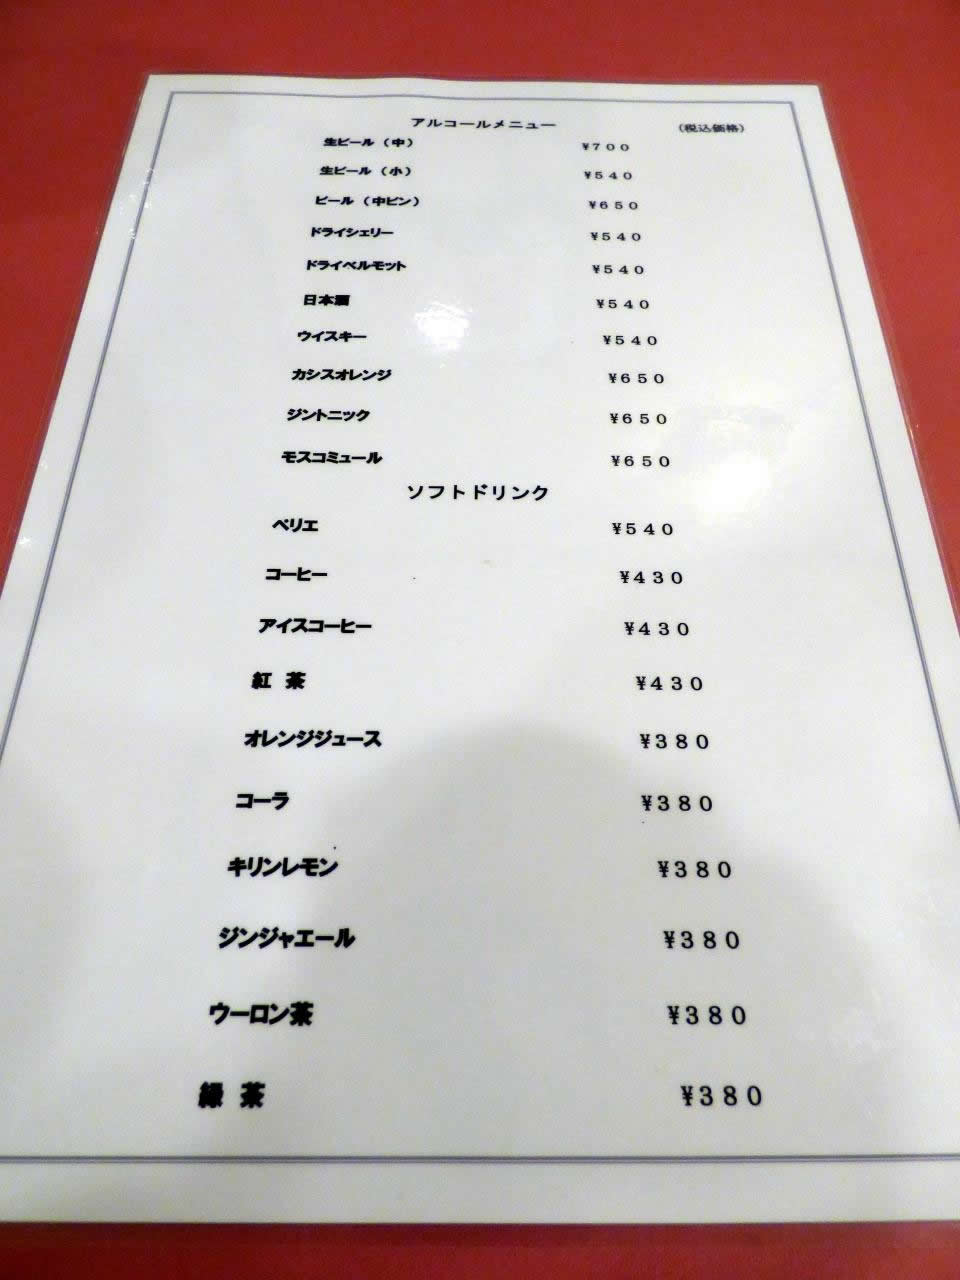 アルコールメニュー （税込価格）
生ビール（中） ¥７００
生ビール（小） ¥５４０
ビール（中ビン） ¥６５０
ドライシェリー ¥５４０
ドライベルモット ¥５４０
日本酒 ¥５４０
ウイスキー ¥５４０
カシスオレンジ ¥６５０
ジントニック ¥６５０
モスコミュール ¥６５０
ソフトドリンク
ペリエ ¥５４０
コーヒー ¥４３０
アイスコーヒー ¥４３０
紅　茶 ¥４３０
オレンジジュース ¥３８０
コーラ ¥３８０
キリンレモン ¥３８０
ジンジャエール ¥３８０
ウーロン茶 ¥３８０
緑　茶 ¥３８０